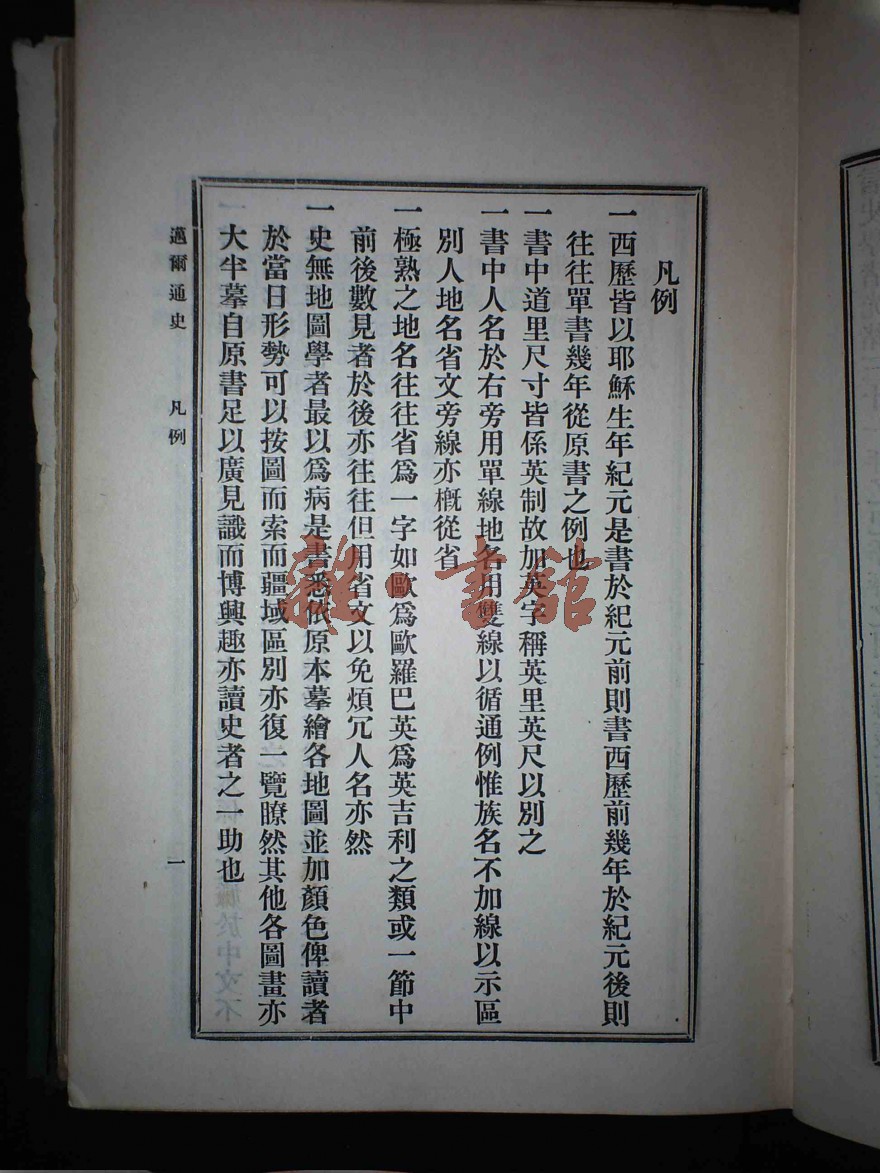 凡例
一西歷皆以耶穌生年紀元是書於紀元前則書西歷前幾年於紀元後則
往往單書幾年從原書之例也
一書中道里尺寸皆係英制故加英字稱英里英尺以別之
一書中人名於右旁用單線地名用雙線以循通例惟族名不加線以示區
別人地名省文旁線亦槪從省
一極熟之地名往往省爲一字如歐爲歐羅巴英爲英吉利之類或一節中
前後數見者於後亦往往但用省文以免煩冗人名亦然
一史無地圖學者最以爲病是書悉依原本摹繪各地圖並加顏色俾讀者
於當日形勢可以按圖而索而疆域區別亦復一覽瞭然其他各圖畫亦
大半摹自原書足以廣見識而博興趣亦讀史者之一助也
邁爾通史 凡例 一
雜·書館